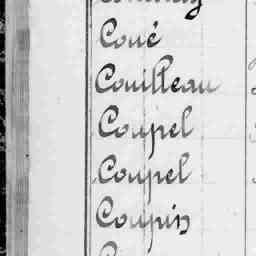 Coué
Couilleau
Coupel
Coupel
Coupin